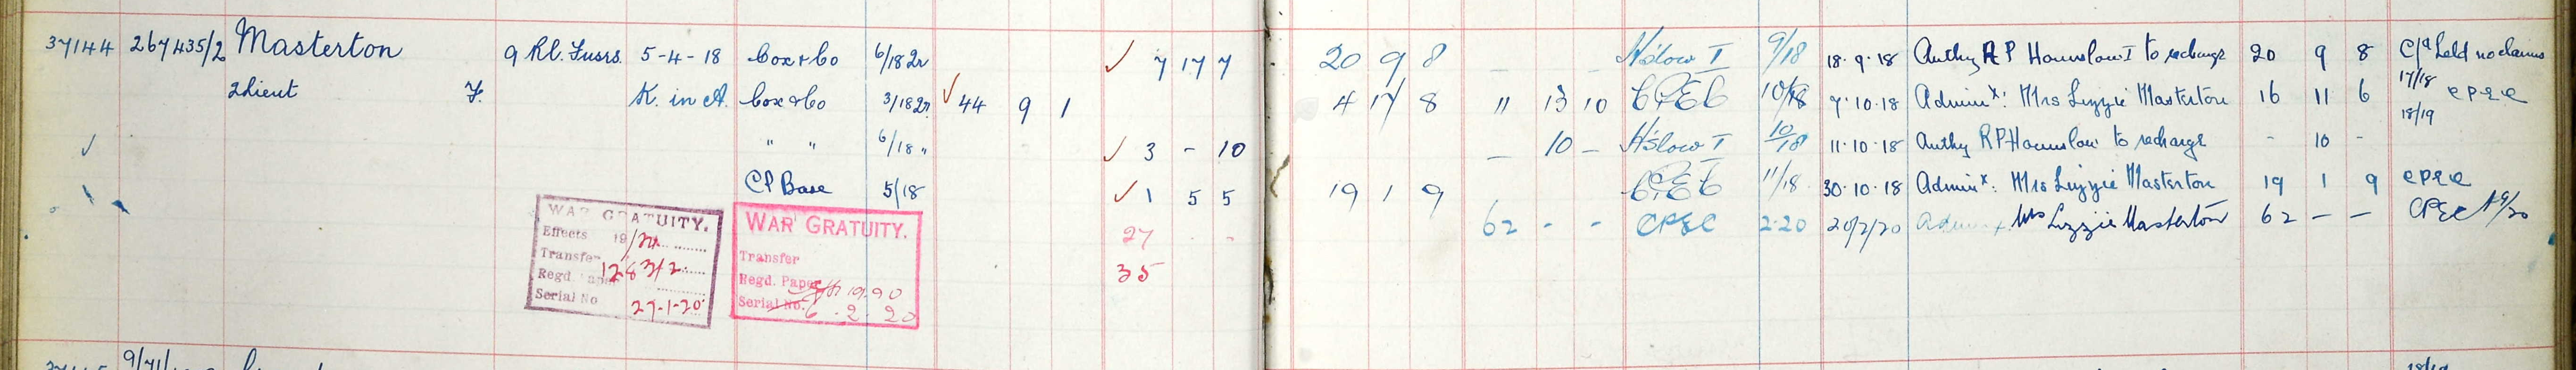 37144 267435/2 Masterton 9 Rl. Fusrs. 5-4-18 Cox & Co 6/18 2n ✓ 7 17 7 20 9 8 – – H'slow I 9/18 18.9.18 Authy R P Hounslow I to recharge 20 9 8 C/a held no claims
2 Lieut F. K. in A. Cox & Co 3/18 2n ✓ 44 9 1 4 17 8 11 13 10 CPEC 10/18 7.10.18 Admin x: Mrs Lizzie Masterton 16 11 6 17/18 CPEC
18/19
✓ " " 6/18 " ✓ 3 – 10 – 10 – H'slow I 10/18 11.10.18 Authy RP Hounslow to recharge - 10 -
CP Base 5/18 ✓ 1 5 5 19 1 9 CPEC 11/18 30.10.18 Admin x: Mrs Lizzie Masterton 19 1 9 CPEC
27 - - 62 - - CPEC 2.20 20/2/20 Admin x. Mrs Lizzie Masterton 62 – – CPEC
35
WAR GRATUITY.
Effects 19/
Transfer
Regd. Paper
Serial No 27-1-20
WAR GRATUITY.
Transfer
Regd. Paper
Serial No. 6.2.20